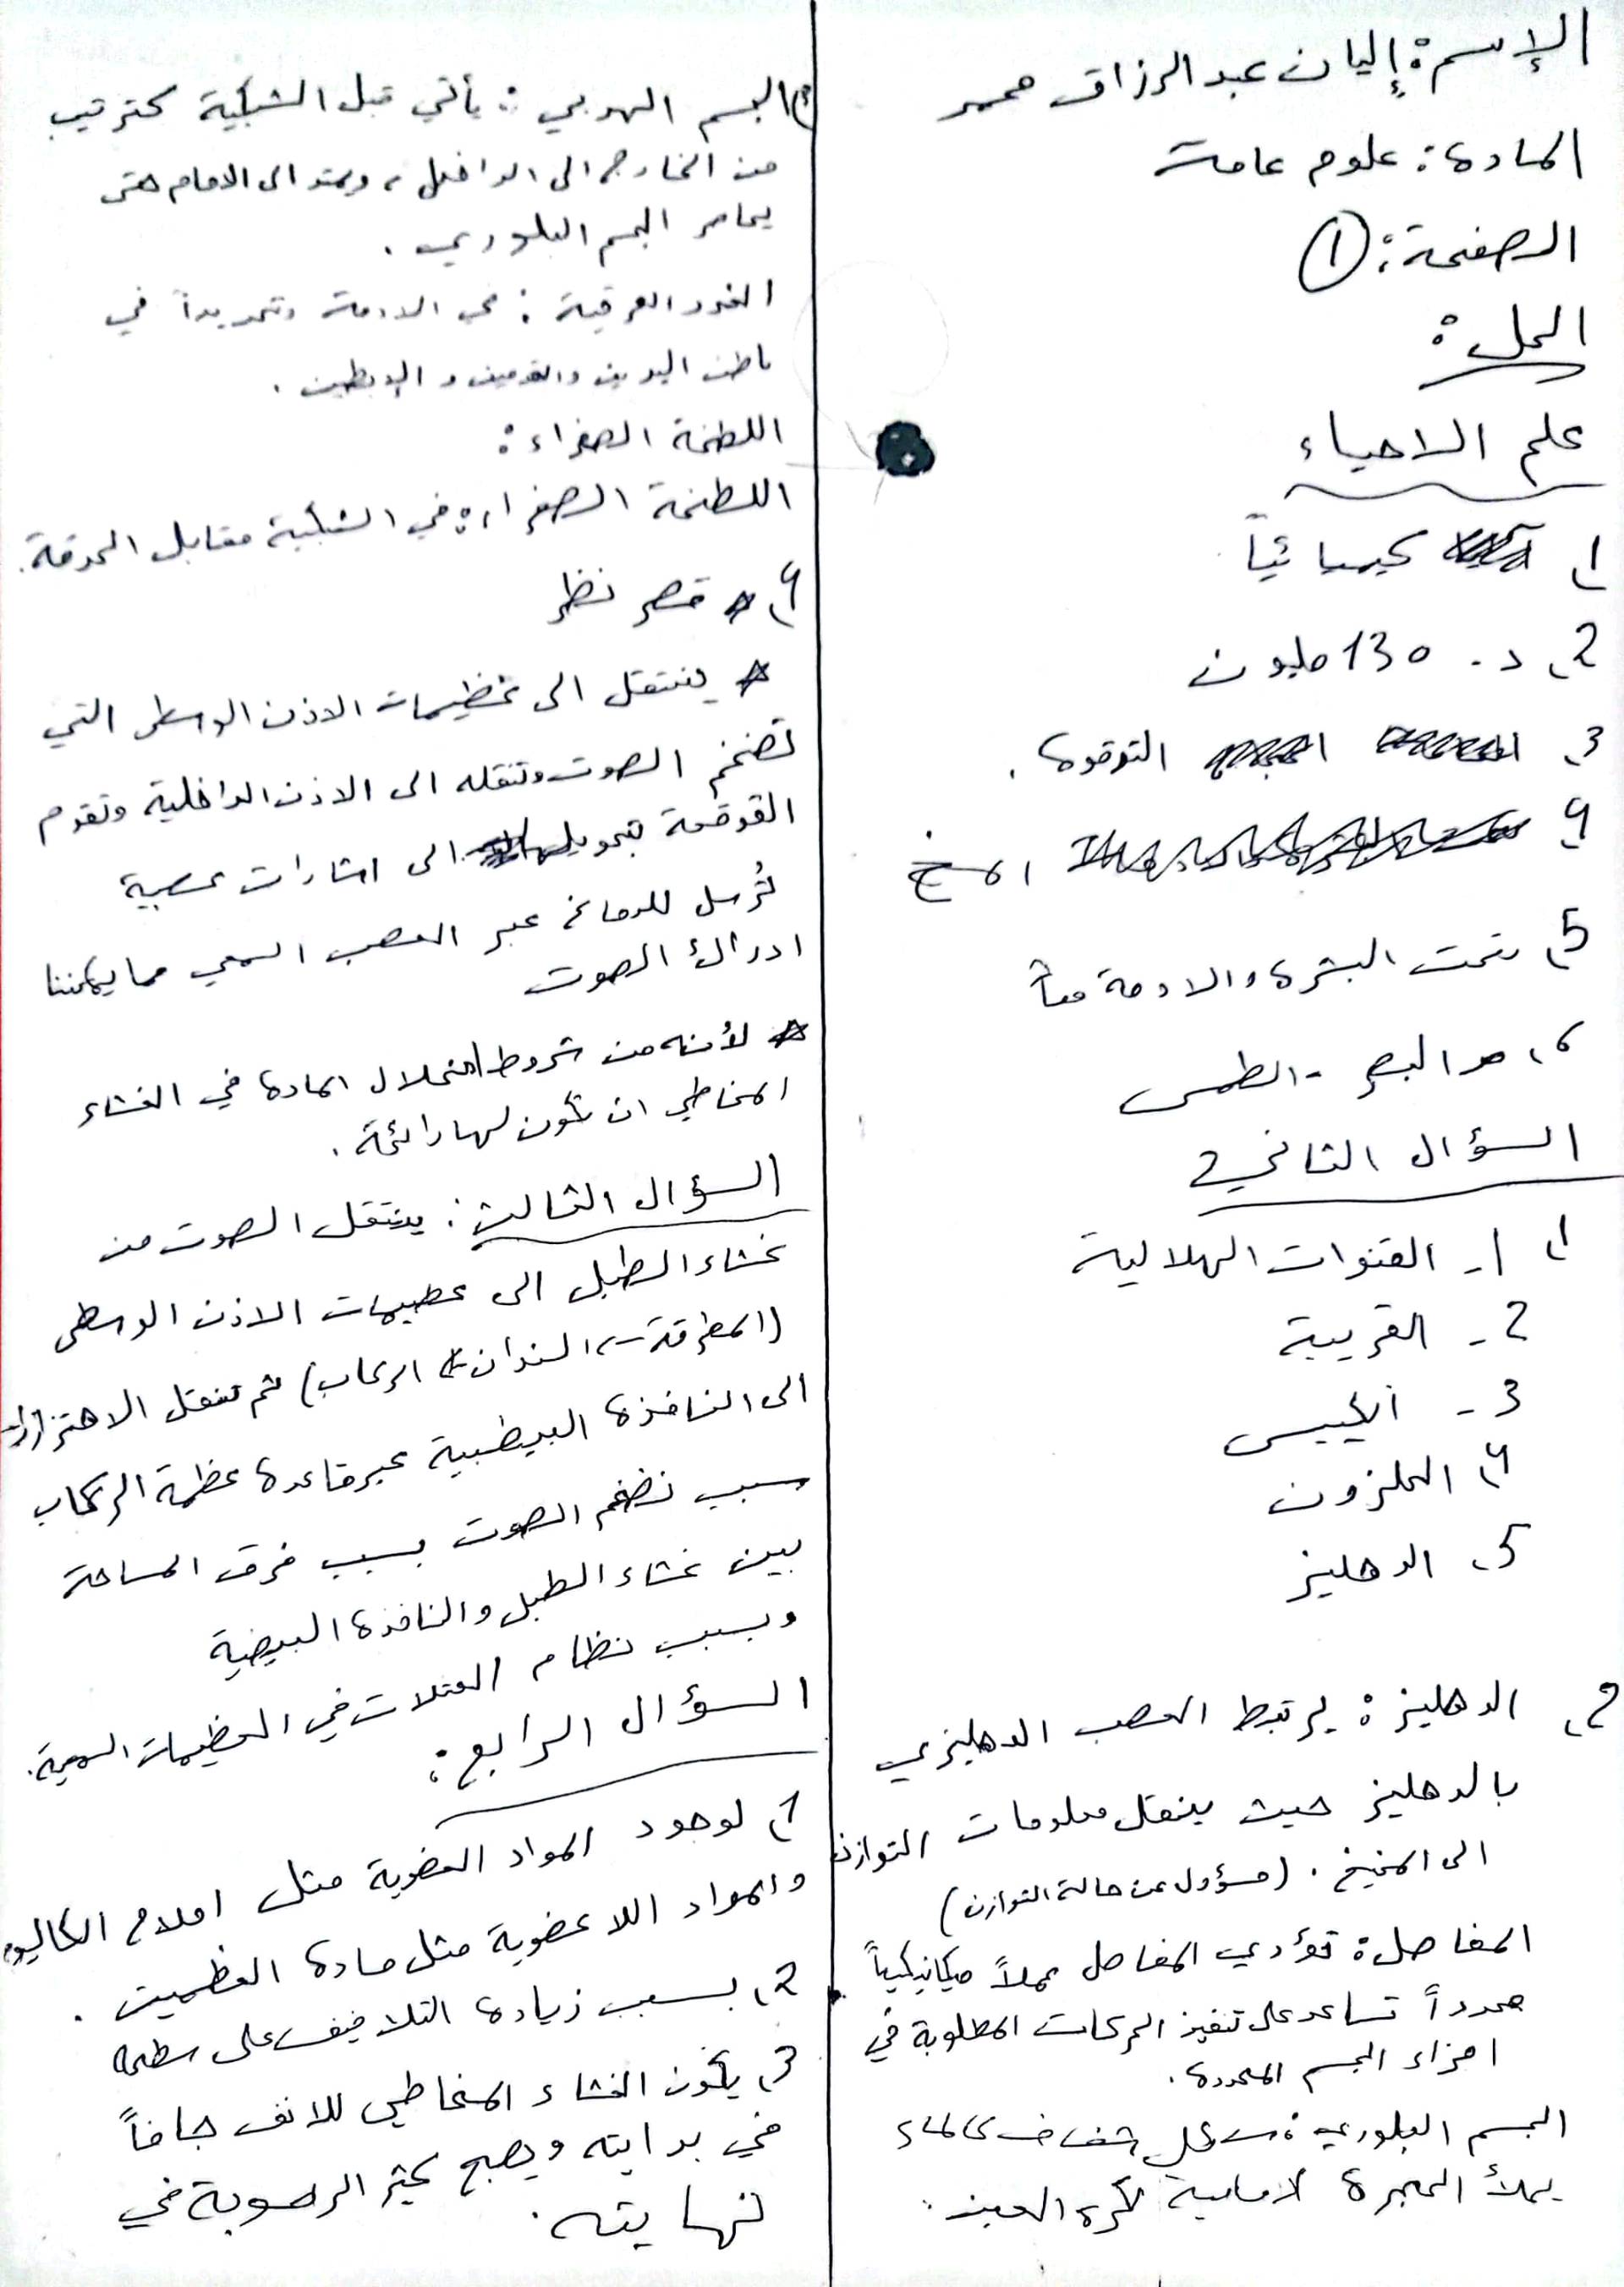 الإسم: إليان عبد الرزاق محمد
المادة: علوم عامة
الصفحة: ١
الحل:
علم الاحياء
1) كيميائياً
2) د. 130 مليون
3) التوقوة.
4) المخ
5) تحت البشرة والادمة معاً
6) البصر - الطمس
السؤال الثاني
1) 1- القنوات الهلالية
2- القريبة
3- الكييس
4) الحلزون
5) الدهليز
2) الدهليز: يرتبط العصب الدهليزي
بالدهليز حيث ينقل معلومات التوازن
الى المخيخ. (مسؤول عن حالة التوازن)
المفاصل: تؤدي المفاصل عملاً ميكانيكياً
محدداً تساعد على تنفيذ الحركات المطلوبة في
اجزاء الجسم المحددة.
الجسم البلوري: سائل شفاف كالماء
يملأ الحجرة الامامية لكرة العين.
3) الجسم الهدبي: يأتي قبل الشبكية كترتيب
من الخارج الى الداخل، ويمتد الى الامام حتى
يحاصر الجسم البلوري.
الغدد العرقية: في الادمة وتحديداً في
باطن اليدين والقدمين و الإبطين.
اللطخة الصفراء:
اللطخة الصفراء: في الشبكية مقابل الحدقة.
4) * قصر نظر
* ينتقل الى عظيمات الاذن الوسطى التي
تضخم الصوت وتنقله الى الاذن الداخلية وتقوم
القوقعة بتحويلها الى اشارات عصبية
تُرسل للدماغ عبر العصب السمعي مما يمكننا
ادراك الصوت
* لأنه من شروط انحلال المادة في الغشاء
المخاطي ان تكون لها رائحة.
السؤال الثالث: ينتقل الصوت من
غشاء الطبل الى عظيمات الاذن الوسطى
(المطرقة ← السندان ← الركاب) ثم تنتقل الاهتزازات
الى النافذة البيضية عبر قاعدة عظمة الركاب
سبب تضخم الصوت بسبب فرق المساحة
بين غشاء الطبل والنافذة البيضية
وبسبب نظام العتلات في العظيمات السمعية.
السؤال الرابع:
1) لوجود المواد العضوية مثل املاح الكاليوم
والمواد اللاعضوية مثل مادة العظميين.
2) بسبب زيادة التلافيف على سطحه
3) يكون الغشاء المخاطي للانف جافاً
في بدايته ويصبح كثير الرطوبة في
نهايته.